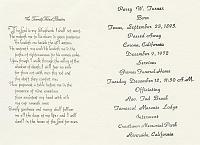 The Twenty Third Psalm
The Lord is my Shepherd; I shall not want.
He maketh me to lie down in green pastures:
He leadeth me beside the still
waters. He restoreth my soul: He
leadeth me in the paths of
righteousness for His name's sake.
Yea, though I walk through the valley of the
shadow of death, I will fear no evil:
for thou art with me; thy rod and
thy staff they comfort me.
Thou preparest a table before me in
the presence of mine enemies:
thou anointest my head with oil;
my cup runneth over.
Surely goodness and mercy shall follow
me all the days of my life: and I will
dwell in the house of the Lord for ever.
Perry W. Turner
Born
Texas, September 29, 1893.
Passed Away
Corona, California
December 9, 1972
Services
Funeral Home
Tuesday, December 12, 11:30 A.M.
Officiating
Rev. Ted Brush
Temescal Masonic Lodge
Interment
Crestlawn Memorial Park
Riverside, California